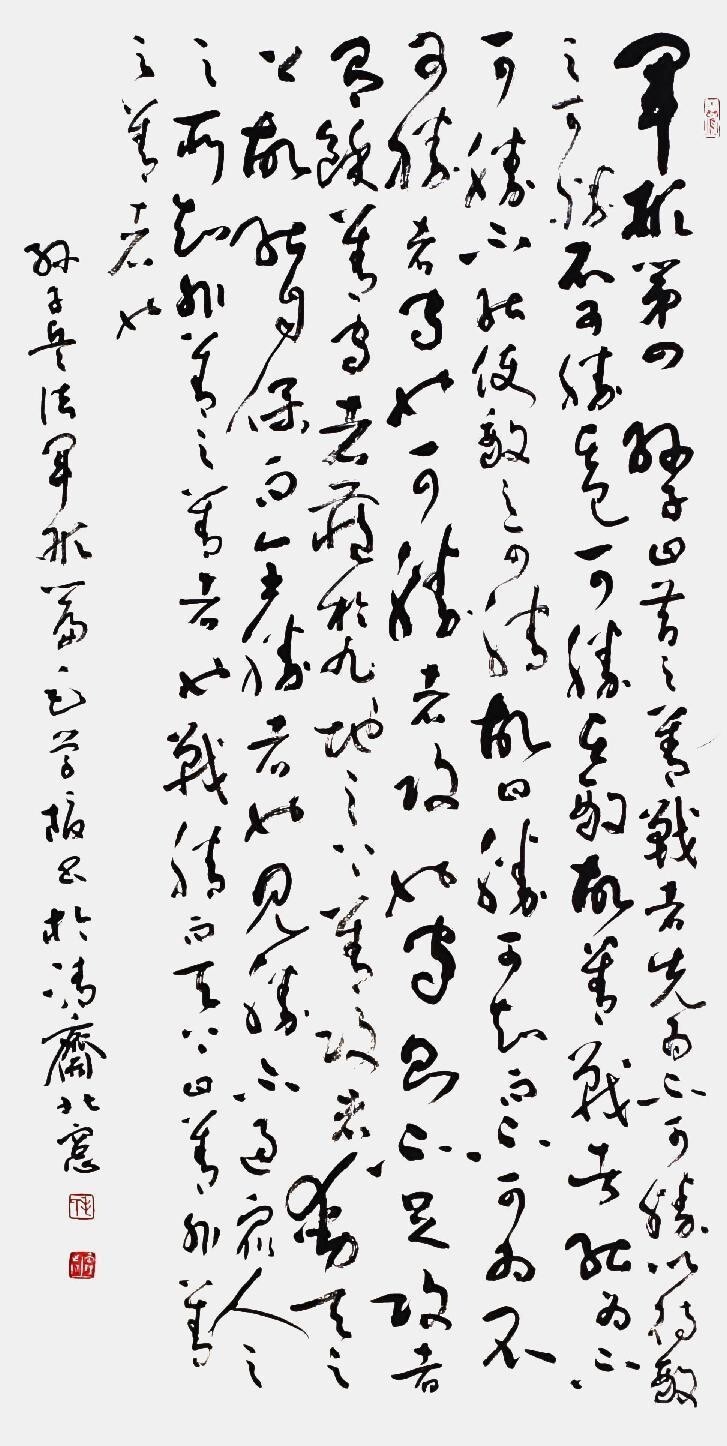 軍形第四 孫子曰昔之善戰者先為不可勝以待敵
之可勝不可勝在己可勝在敵故善戰者能為不
可勝不能使敵之可勝故曰勝可知而不可為不
可勝者守也可勝者攻也守則不足攻者
有餘善守者藏於九地之下善攻者動天之
上故能自保而全勝者也見勝不過眾人之
之所知非善之善者也戰勝而天下曰善非善
之善者也
孫子兵法軍形篇 學 書於清齋北窗